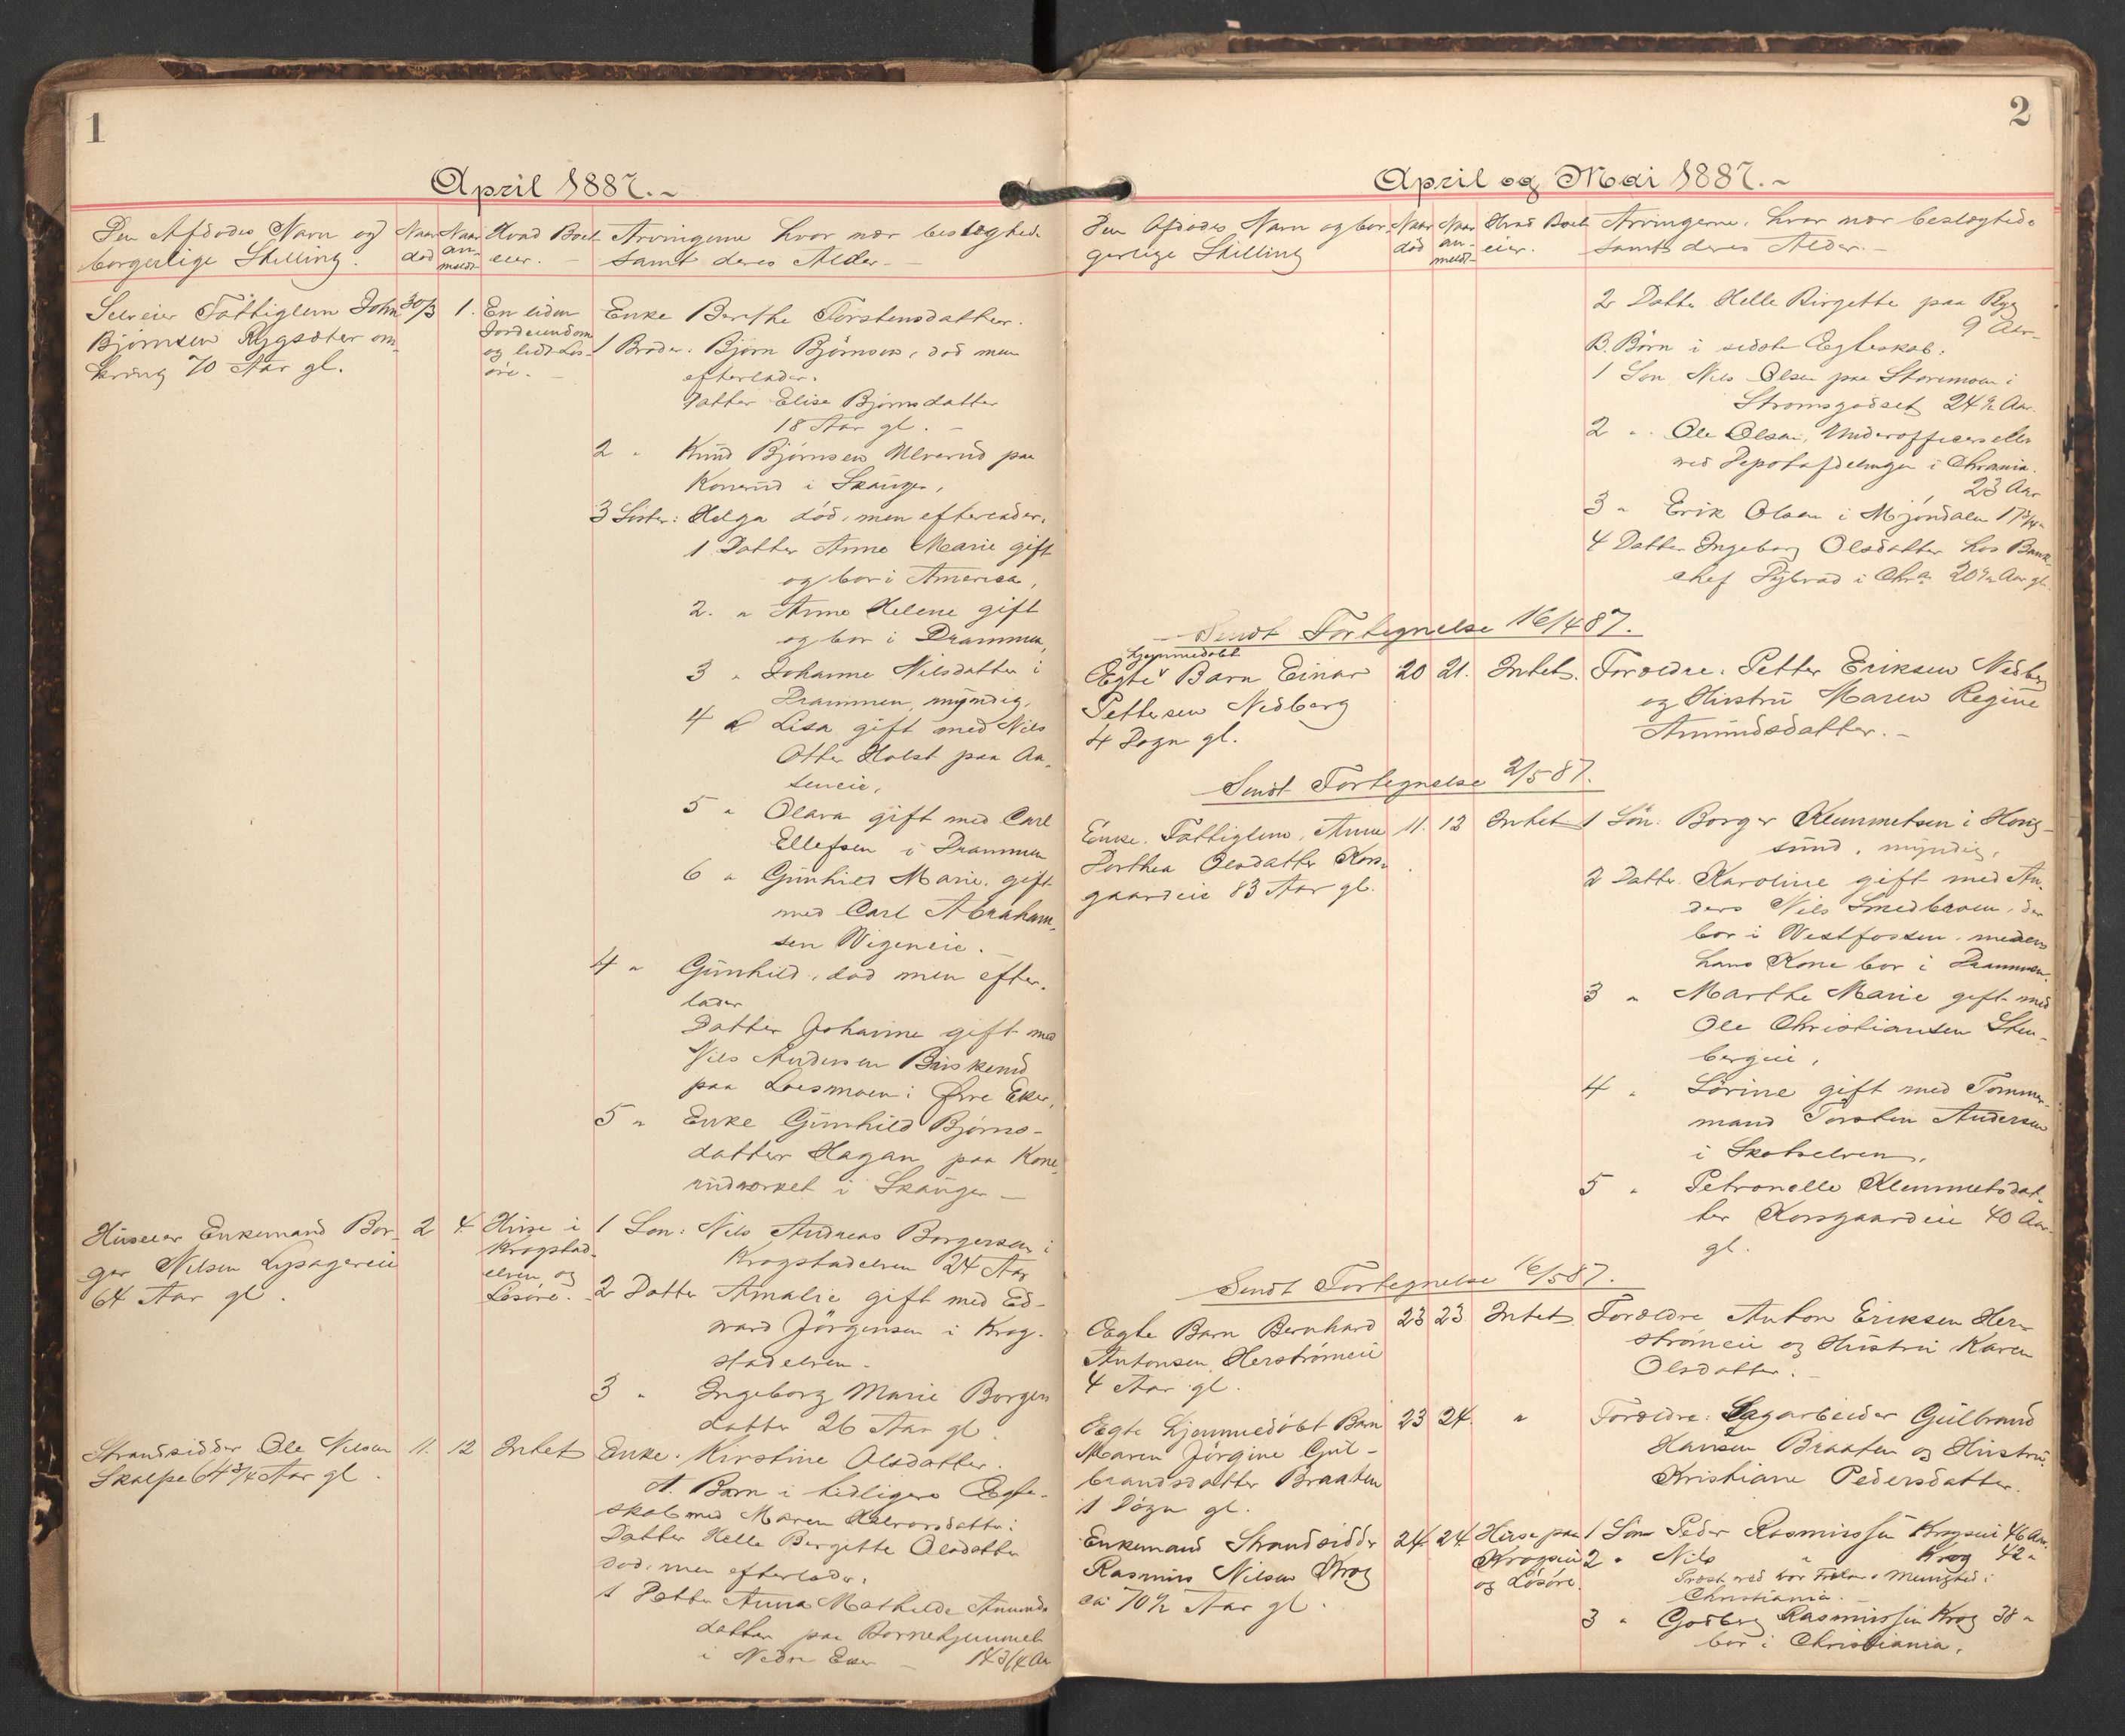 1
April 1887.-
Den Afdødes Navn og
borgerlige Stilling.
Naar
død
Naar
an-
meldt
Hvad Boet
eier. -
Arvingerne hvor nær beslægtede
samt deres Alder. -
Selveier Fattiglem John
Bjørnsen Rygsæter om-
kring 70 Aar gl.
30/3
1.
En liden
Jordeiendom
og lidt Løs-
øre. -
Enke Berthe Torstensdatter.
1 Broder. Bjørn Bjørnsen, død men
efterlader.
Datter Elise Bjørnsdatter
18 Aar gl. -
2 " Knud Bjørnsen Ulverud paa
Konerud i Skauger,
3 Søster: Helga død, men efterlader.
1 Datter Anne Marie gift
og bor i America,
2. " Anne Helene gift
og bor i Drammen,
3 " Johanne Nilsdatter i
Drammen, myndig,
4 " Lisa gift med Nils
Otter Holst paa Aa-
seneie,
5 " Olava gift med Carl
Ellefsen i Drammen
6 " Gunhild Marie. gift
med Carl Abraham-
sen Wigeneie.
4 " Gunhild, død men efter-
lader
Datter Johanne gift med
Nils Andersen Buskerud
paa Loesmoen i Øvre Eker,
5 " Enke Gunhild Bjørns-
datter Hagan paa Kone-
rudværket i Skauger -
Huseier Enkemand Bor-
ger Nilsen Lysagereie
64 Aar gl.
2
4
Huse i
Krogstad-
elven, og
Løsøre.
1 Søn: Nils Andreas Borgersen i
Krogstadelven 24 Aar
2 Datter Amalie gift med Ed-
vard Jørgensen i Krog-
stadelven -
3 " Ingeborg Marie Borgers
datter 26 Aar gl.
Strandsidder Ole Nilsen
Skalpe 64 3/4 Aar gl.
11.
12
Intet
Enke. Kirstine Olsdatter.
A. Børn i tidligere Egte-
skab med Maren Halvorsdatter:
Datter Helle Bergitte Olsdatter
død, men efterlader.
1 Datter Anna Mathilde Amunds
datter paa Børnehjemmet
i Nedre Eker - 14 3/4 Aar
2
April og Mai 1887.-
Den Afdødes Navn og bor-
gerlige Stilling
Naar
død
Naar
an-
meldt
Hvad Boet
eier.
Arvingerne, hvor nær beslægtede
samt deres Alder. -
2 Datter Helle Birgette paa Ryg
9 Aar-
B. Børn i sidste Egteskab:
1 Søn Nils Olsen paa Storemoen i
Strømsgodset 24 1/2 Aar.
2 " Ole Olsen, Underofficerselev
ved Depotafdelingen i Chrania.
23 Aar
3 " Erik Olsen i Mjøndalen 17 3/4 "
4 Datter Ingeborg Olsdatter hos Bank-
chef i Chra 20 1/2 Aar gl.
Sendt Fortegnelse 16/4 87.
hjemmedøbt
Egte Barn Einar
Pettersen Nedberg
4 Døgn gl.
20
21.
Intet.
Forældre. Petter Eriksen Nedberg
og Hustru Maren Regine
Amundsdatter. -
Sendt Fortegnelse 2/5 87.
Enke. Fattiglem, Anne
Dorthea Olsdatter Kors-
gaardeie 83 Aar gl.
11.
12
Intet
1 Søn. Borger Klemmetsen i Houg-
sund, myndig,
2 Datter. Karoline gift med An-
ders Nils Smedbraen, der
bor i Westfossen, medens
hans Kone bor i Drammen.
3 " Marthe Marie gift med
Ole Christiansen Sten-
bergeie,
4 " Sørine gift med Tømmer-
mand Torsten Andersen
i Skotselven,
5 " Petronelle Klemmetsdat-
ter Korsgaardeie 40 Aar
gl.
Sendt Fortegnelse 16/5 87.
Egte Barn Bernhard
Antonsen Herstrømeie
4 Aar gl.
23
23
Intet
Forældre Anton Eriksen Her-
strømeie og Hustru Karen
Olsdatter. -
Egte hjemmedøbt Barn
Maren Jørgine Gul-
brandsdatter Braaten
1 Døgn gl.
23
24.
"
Forældre: Sagarbeider Gulbrand
Hansen Braaten og Hustru
Kristiane Pedersdatter.
Enkemand Strandsidder
Rasmus Nilsen Krog
ca 70 1/2 Aar gl.
24
24
Huse paa
Krogseie
og Løsøre.
1 Søn Peder Rasmussen Krogseie 46 Aar.
2 " Nils " Krog 42 "
Præst ved vor Frelsers Menighed i
Christiania. -
3 " Godberg Rasmussen Krog 38 "
bor i Christiania.